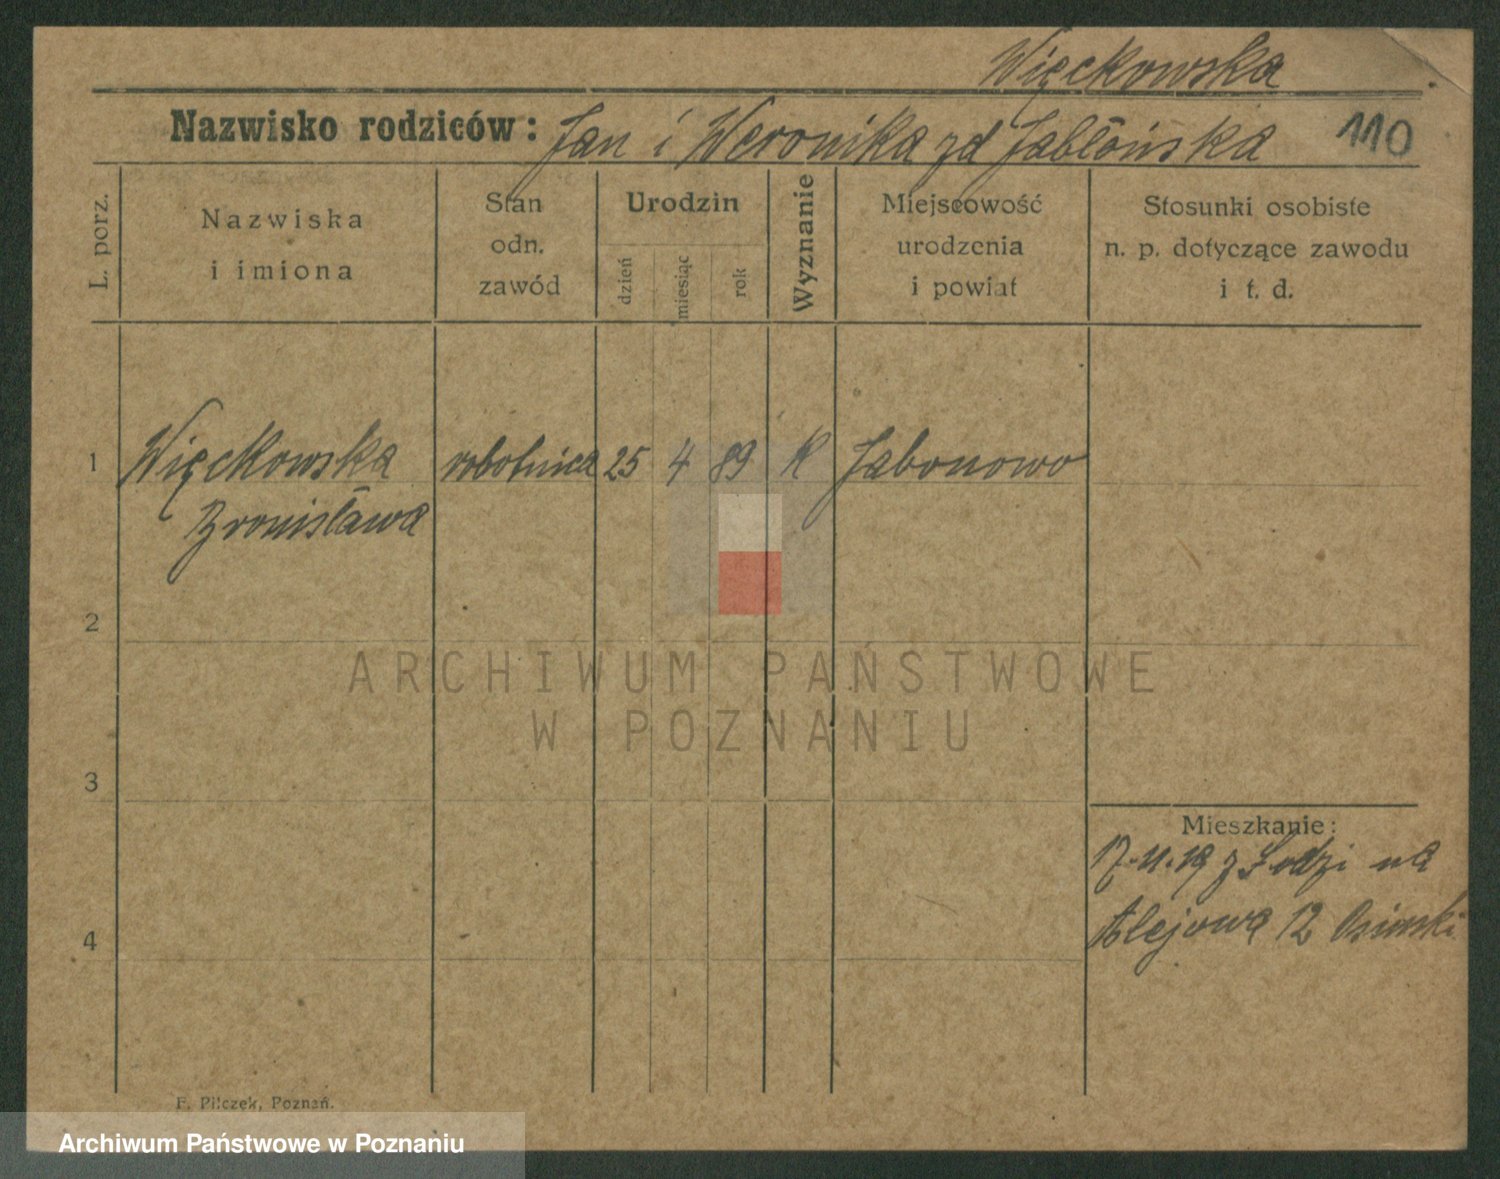 Więckowska
Nazwisko rodziców: Jan i Weronika zd Jabłońska 110
L. porz.
Nazwiska
i imiona
Stan
odn.
zawód
Urodzin
dzień
miesiąc
rok
Wyznanie
Miejscowość
urodzenia
i powiat
Stosunki osobiste
n. p. dotyczące zawodu
i t. d.
1 Więckowska robotnica 25 4 89 K Jabonowo
Bronisława
2
3
4
Mieszkanie:
17.11.19 z Łodzi na
Alejowa 12 Osinski
F. Pilczek, Poznań.
ARCHIWUM PAŃSTWOWE
W POZNANIU
Archiwum Państwowe w Poznaniu